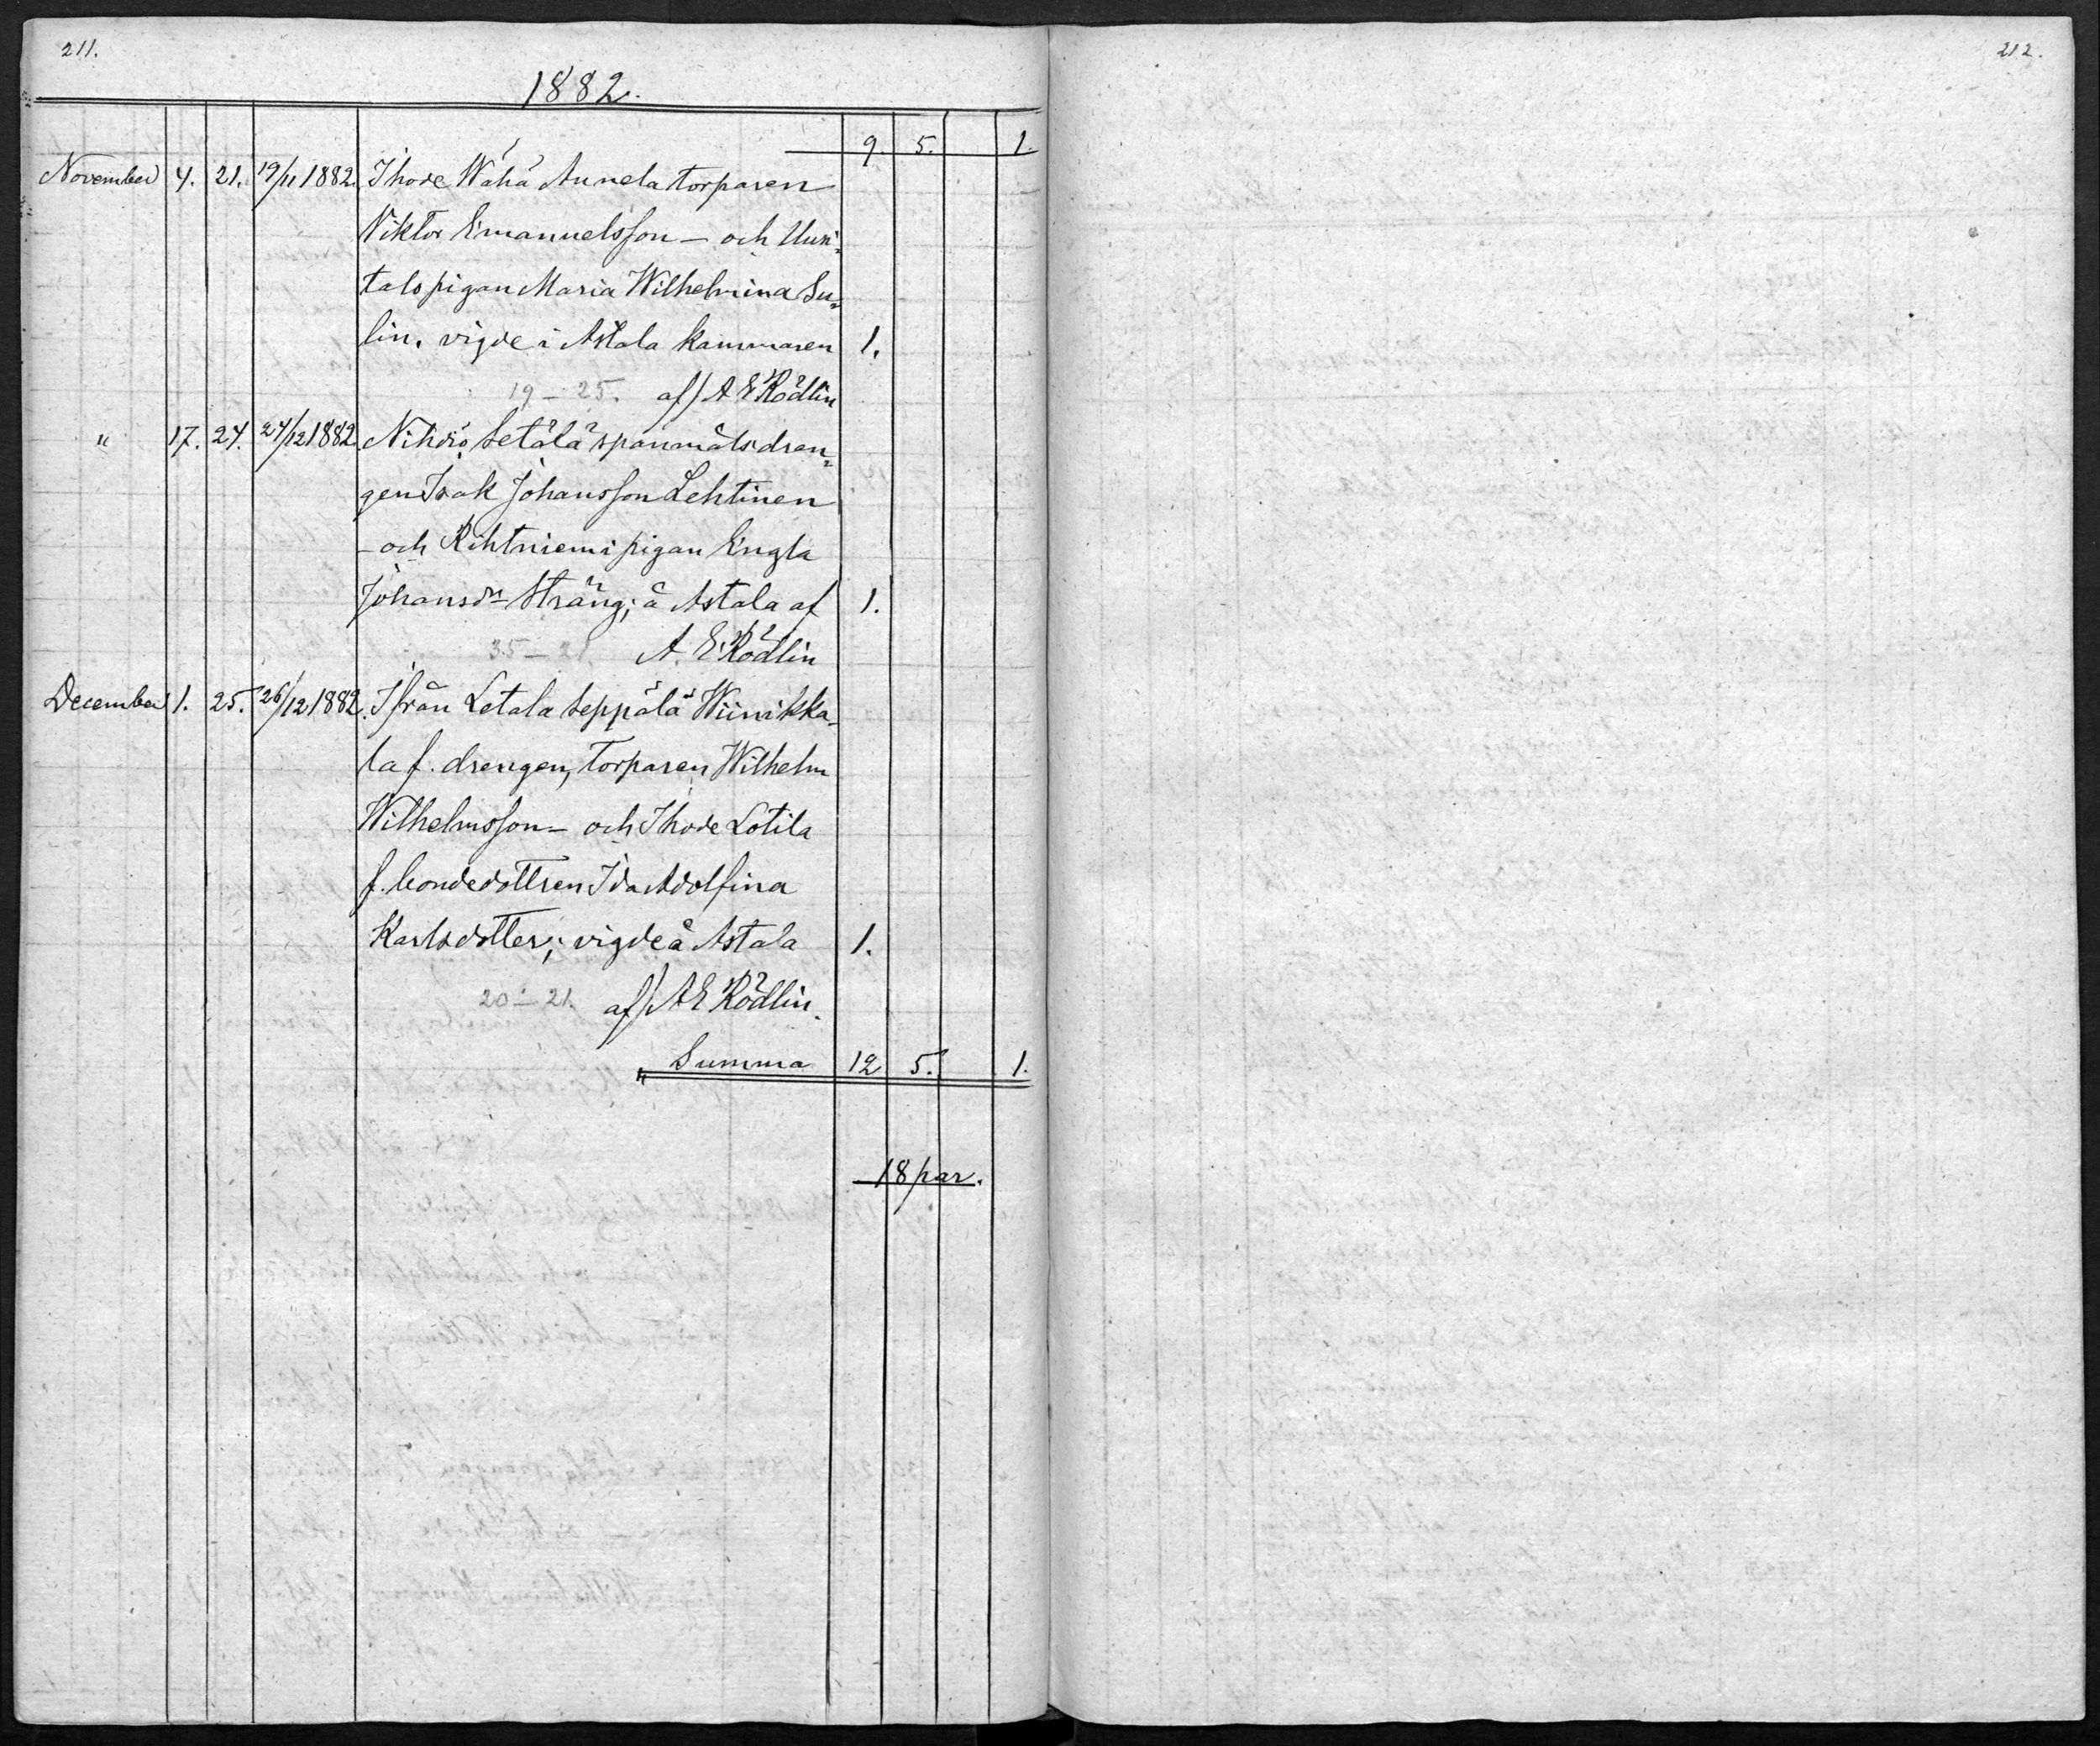 211.
212.
1882.
9. 5. 1.
November 4. 21. 19/11 1882. Ihode Wähä Annela torparen
Viktor Emanuelsson – och Uusi=
talo pigan Maria Wilhelmina Su=
lin, vigde i Astala kammaren 1.
19 – 25. af/ A E Rödlin
" 17. 24. 24/12 1882 Nihdiö Setälä spanmålsdren=
gen Isak Johansson Lehtinen
– och Rihtniemi pigan Engla
Johansdr Sträng; å Astala af 1.
35 – 28. A. E. Rödlin
December 1. 25. 26/12 1882. Ifrån Letala Seppälä Wiinikka=
la f. drengen, torparen Wilhelm
Wilhelmsson – och Ihode Lotila
f. bondedottren Ida Adolfina
Karlsdotter; vigde å Astala 1.
20 – 21. af/ A E Rödlin.
" Summa 12 5. 1.
18 par.